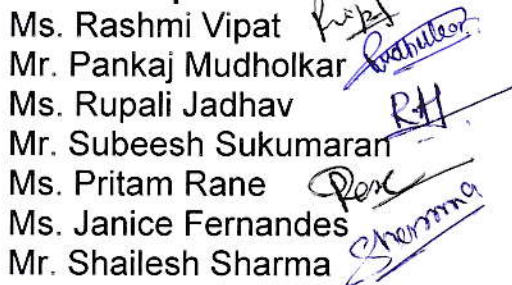 Ms. Rashmi Vipat
Mr. Pankaj Mudholkar
Ms. Rupali Jadhav
Mr. Subeesh Sukumaran
Ms. Pritam Rane
Ms. Janice Fernandes
Mr. Shailesh Sharma Sharma